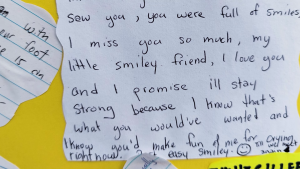 sew you, you were full of smiles
I miss you so much, my
little smiley friend, I love you
and I promise ill stay
strong because I know that's
what you would've wanted and
I know you'd make fun of me for crying
right now. easy smiley. ☺
with
your
is on